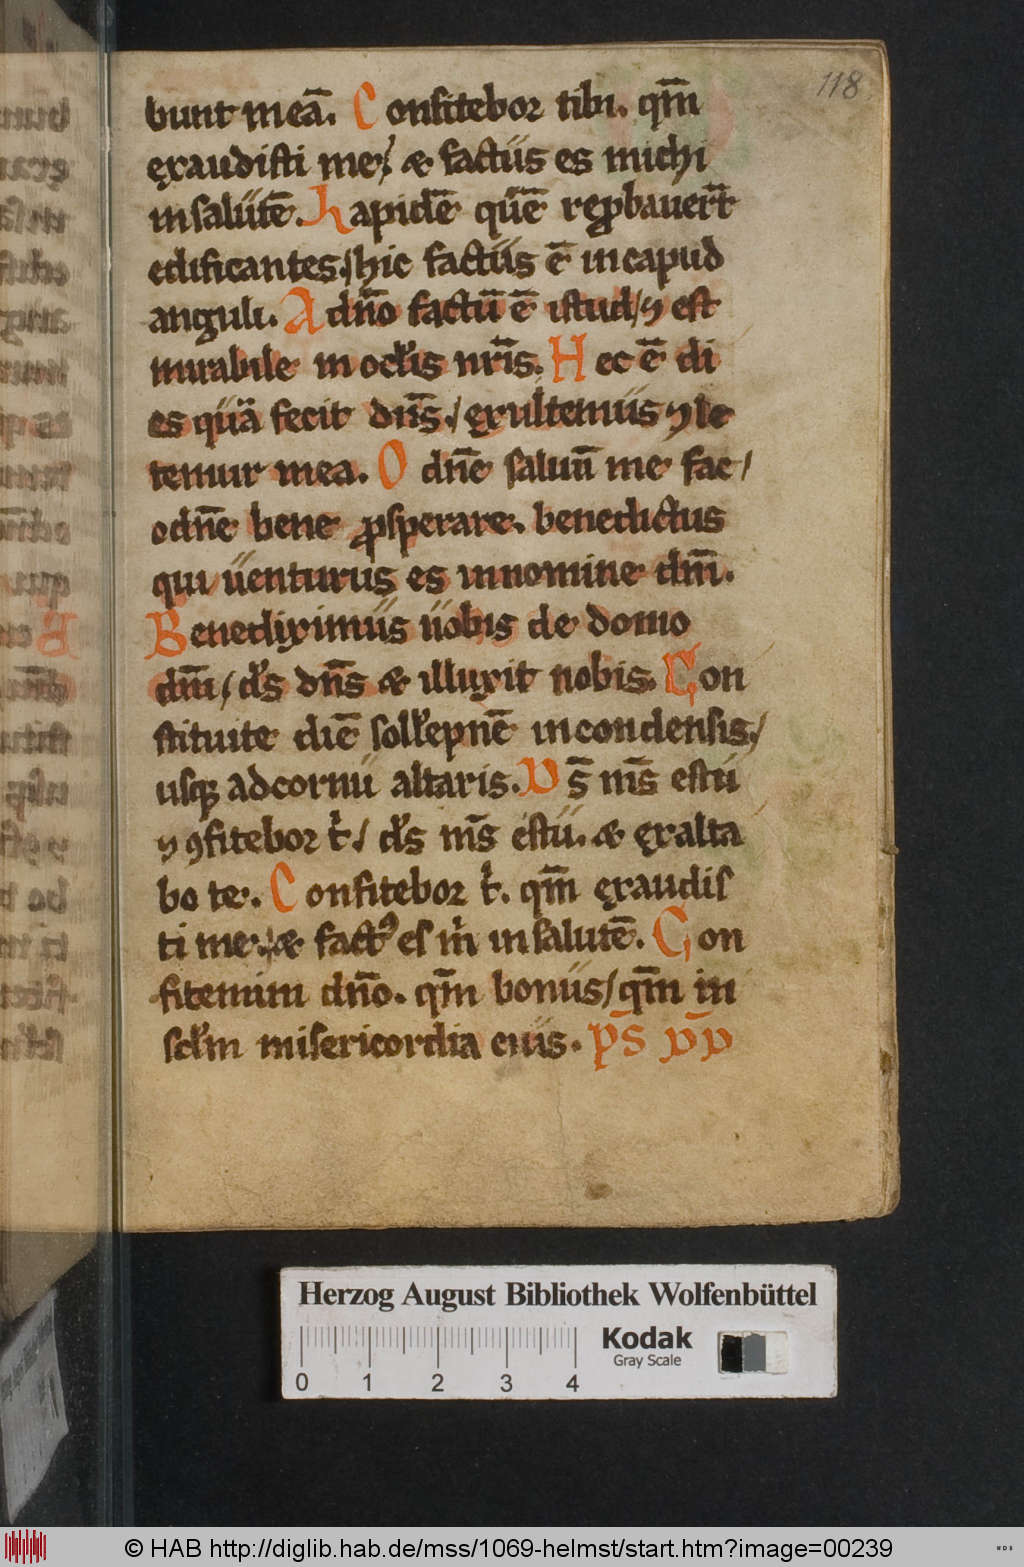 118
bunt meā. Confitebor tibi. qm̄
exaudisti me / & factus es michi
in salutē. Lapidē quē reprobauer̄t
edificantes. / hic factus ē in capud
anguli. A dn̄o factū ē istud / ⁊ est
mirabile in oc̄lis nr̄is. Hec ē di
es quā fecit dn̄s. / exultemus ⁊ le
temur in ea. O dn̄e saluū me fac /
o dn̄e bene ꝓsperare. benedictus
qui uenturus es in nomine dn̄i.
Benediximus uobis de domo
dn̄i / d̄s dn̄s & illuxit nobis. Con
stituite diē soll̄epnē in condensis /
usq; ad cornu altaris. D s̄ m̄s es tu
⁊ ꝯfitebor t̓. / d̄s m̄s es tu. & exalta
bo te. Confitebor t̓. qm̄ exaudis
ti me. & factꝰ es m̓ in salutē. Con
fitemini dn̄o. qm̄ bonus / qm̄ in
sc̄lm misericordia eius. p̄s
Herzog August Bibliothek Wolfenbüttel
Kodak
Gray Scale
0 1 2 3 4
© HAB http://diglib.hab.de/mss/1069-helmst/start.htm?image=00239